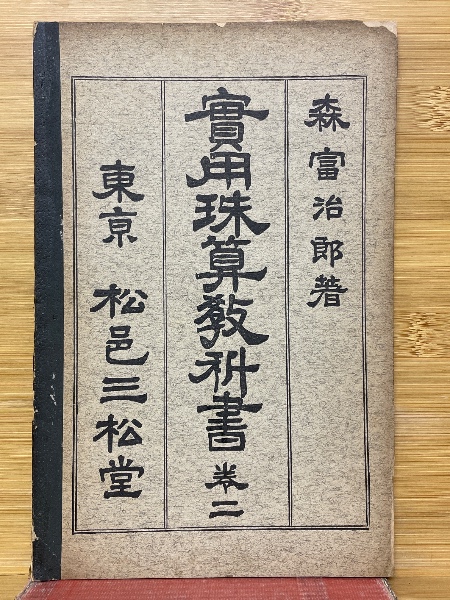 森富治郎著
實用珠算教科書 巻二
東京 松邑三松堂